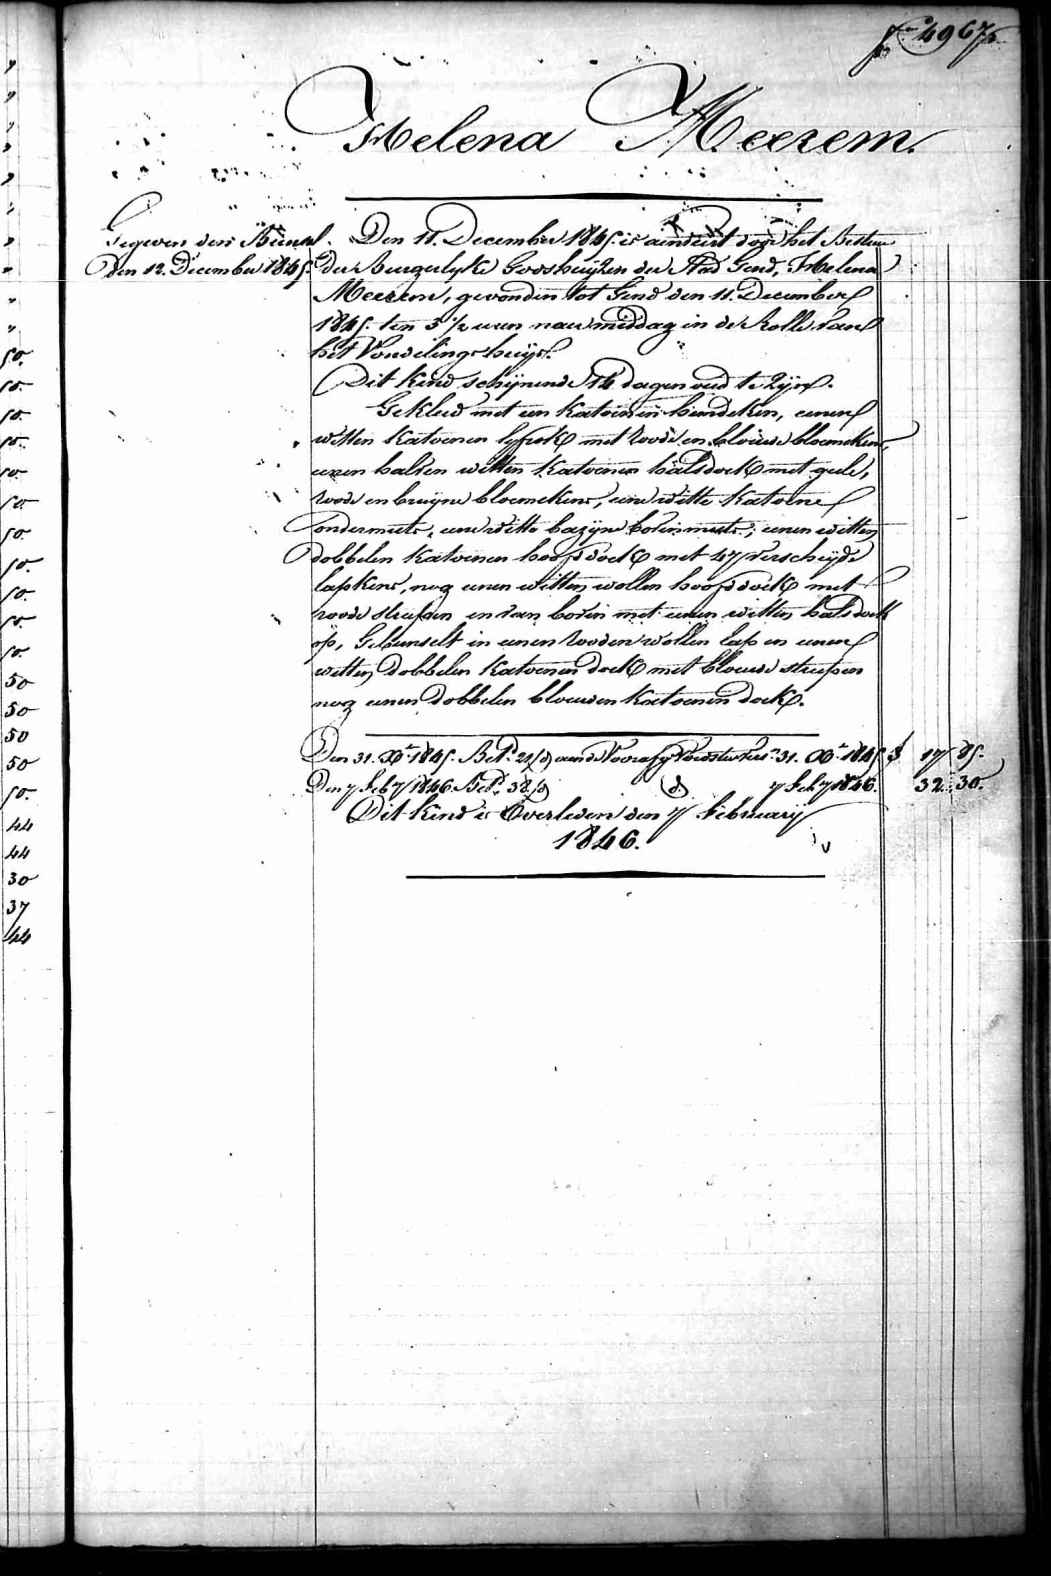 fo 4967
Helena Meerem.
Gegeven den Bunsel.
den 12. December 1845.
Den 11. December 1845. is aenveirt door het Bestuer
der Burgerlyke Godshuijzen der Stad Gend, Helena
Meerem, gevonden tot Gend den 11. December
1845. ten 5 ½ uren naermiddag in de Rolle van
het Vondelingshuijs.
Dit kind schijnende 14 dagen oud te zijn.
Gekleed met een katoenen hemdeken, eenen
witten katoenen lyfrok met roode en blouwe bloemekens,
eenen halven witten katoenen halsdoek met geele,
roode en bruijne bloemekens, eene witte katoene
ondermuts, eene witte bazijne bovenmuts, eenen witten
dobbelen katoenen hoofddoek met 47 verscheijde
lapkens, nog eenen witten wollen hoofddoek met
roode streepen en van boven met eenen witten halsdoek
op, Gebunselt in eenen rooden wollen lap en eenen
witten dobbelen katoenen doek met blouwe streepen
nog eenen dobbelen blouwen katoenen doek.
Den 31. Xbr 1845. Bet. 21 aend 31. Xbr 1845. 17 85.
Den 7 feb 1846. Bet. 38 do 7 feb 1846. 32 30.
Dit kind is Overleden den 7 february
1846.
50.
50
50.
50.
50.
50
50.
50.
50.
50.
50.
50
50
50
50
50.
44
44
30
37
44